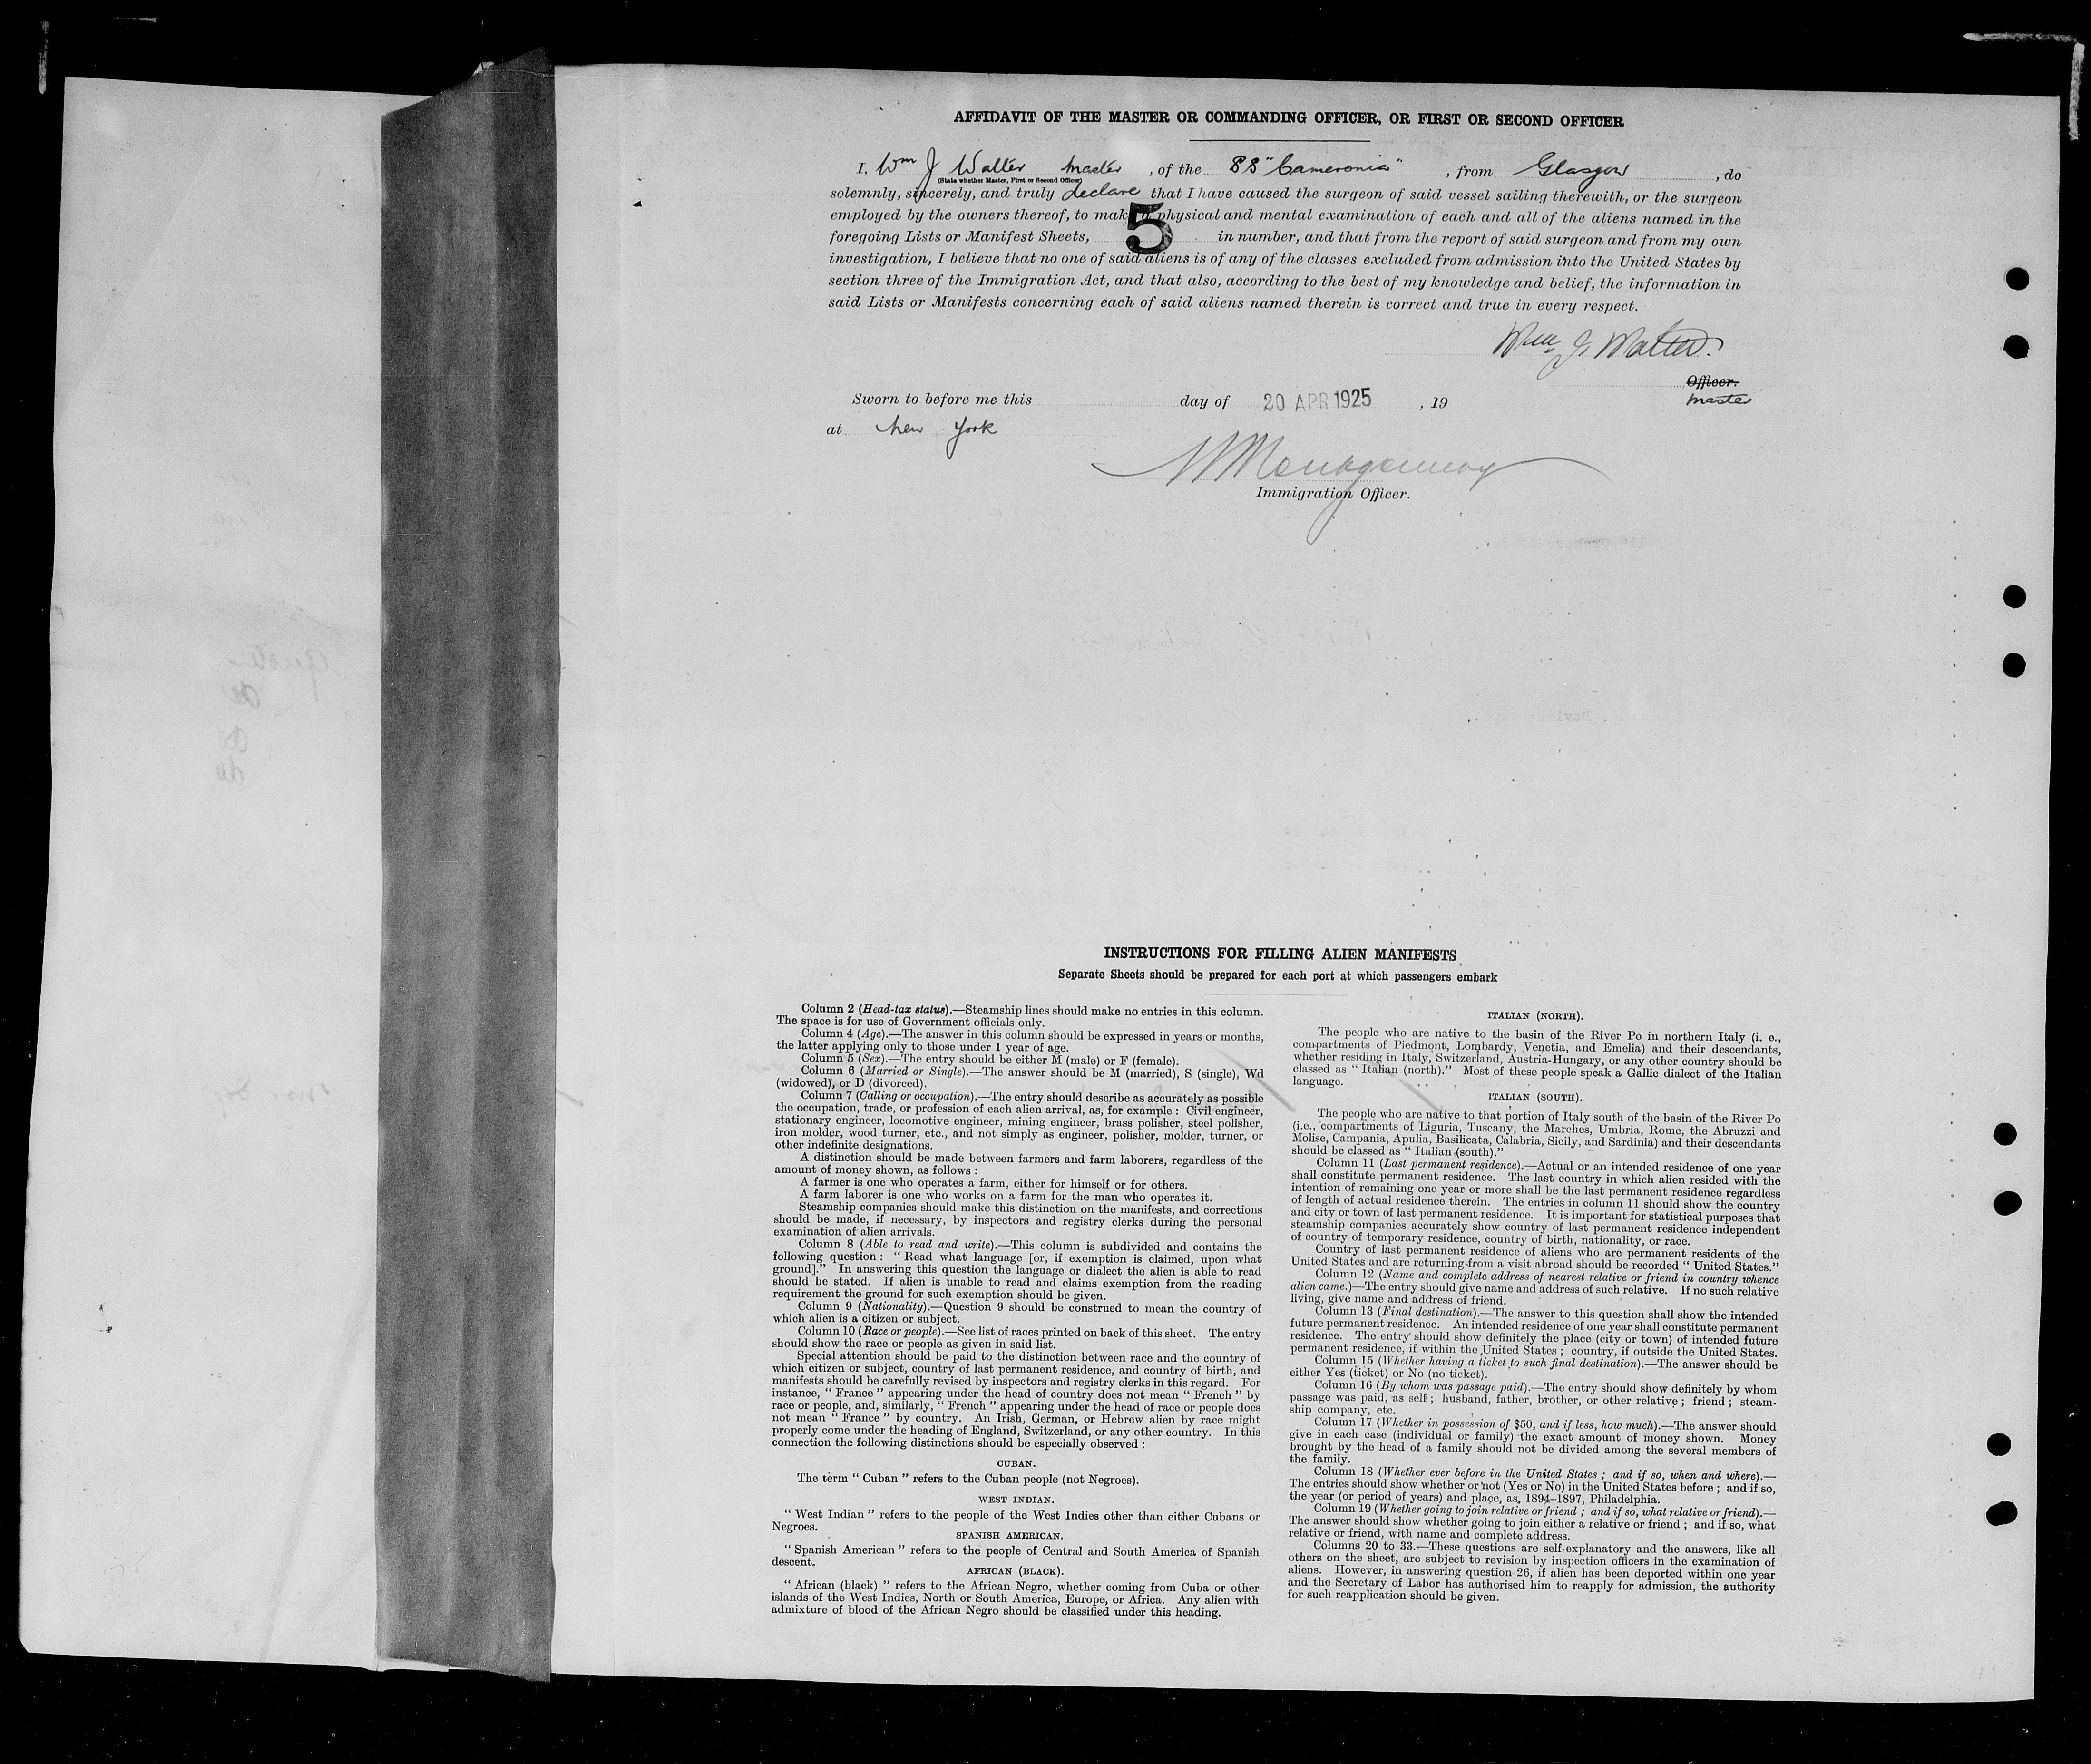 AFFIDAVIT OF THE MASTER OR COMMANDING OFFICER, OR FIRST OR SECOND OFFICER
I, Wm J Walter Master, of the SS "Cameronia", from Glasgow, do
(State whether Master, First or Second Officer)
solemnly, sincerely, and truly declare that I have caused the surgeon of said vessel sailing therewith, or the surgeon
employed by the owners thereof, to make a physical and mental examination of each and all of the aliens named in the
foregoing Lists or Manifest Sheets, 5 in number, and that from the report of said surgeon and from my own
investigation, I believe that no one of said aliens is of any of the classes excluded from admission into the United States by
section three of the Immigration Act, and that also, according to the best of my knowledge and belief, the information in
said Lists or Manifests concerning each of said aliens named therein is correct and true in every respect.
Wm J Walter.
Officer.
Sworn to before me this day of 20 APR 1925, 19 Master
at New York
Montgomery
Immigration Officer.
INSTRUCTIONS FOR FILLING ALIEN MANIFESTS
Separate Sheets should be prepared for each port at which passengers embark
Column 2 (Head-tax status).—Steamship lines should make no entries in this column.
The space is for use of Government officials only.
Column 4 (Age).—The answer in this column should be expressed in years or months,
the latter applying only to those under 1 year of age.
Column 5 (Sex).—The entry should be either M (male) or F (female).
Column 6 (Married or Single).—The answer should be M (married), S (single), Wd
(widowed), or D (divorced).
Column 7 (Calling or occupation).—The entry should describe as accurately as possible
the occupation, trade, or profession of each alien arrival, as, for example : Civil engineer,
stationary engineer, locomotive engineer, mining engineer, brass polisher, steel polisher,
iron molder, wood turner, etc., and not simply as engineer, polisher, molder, turner, or
other indefinite designations.
A distinction should be made between farmers and farm laborers, regardless of the
amount of money shown, as follows :
A farmer is one who operates a farm, either for himself or for others.
A farm laborer is one who works on a farm for the man who operates it.
Steamship companies should make this distinction on the manifests, and corrections
should be made, if necessary, by inspectors and registry clerks during the personal
examination of alien arrivals.
Column 8 (Able to read and write).—This column is subdivided and contains the
following question : " Read what language [or, if exemption is claimed, upon what
ground]." In answering this question the language or dialect the alien is able to read
should be stated. If alien is unable to read and claims exemption from the reading
requirement the ground for such exemption should be given.
Column 9 (Nationality).—Question 9 should be construed to mean the country of
which alien is a citizen or subject.
Column 10 (Race or people).—See list of races printed on back of this sheet. The entry
should show the race or people as given in said list.
Special attention should be paid to the distinction between race and the country of
which citizen or subject, country of last permanent residence, and country of birth, and
manifests should be carefully revised by inspectors and registry clerks in this regard. For
instance, " France " appearing under the head of country does not mean " French " by
race or people, and, similarly, " French " appearing under the head of race or people does
not mean " France " by country. An Irish, German, or Hebrew alien by race might
properly come under the heading of England, Switzerland, or any other country. In this
connection the following distinctions should be especially observed :
CUBAN.
The term " Cuban " refers to the Cuban people (not Negroes).
WEST INDIAN.
" West Indian " refers to the people of the West Indies other than either Cubans or
Negroes.
SPANISH AMERICAN.
" Spanish American " refers to the people of Central and South America of Spanish
descent.
AFRICAN (BLACK).
" African (black) " refers to the African Negro, whether coming from Cuba or other
islands of the West Indies, North or South America, Europe, or Africa. Any alien with
admixture of blood of the African Negro should be classified under this heading.
ITALIAN (NORTH).
The people who are native to the basin of the River Po in northern Italy (i. e.,
compartments of Piedmont, Lombardy, Venetia, and Emelia) and their descendants,
whether residing in Italy, Switzerland, Austria-Hungary, or any other country should be
classed as " Italian (north)." Most of these people speak a Gallic dialect of the Italian
language.
ITALIAN (SOUTH).
The people who are native to that portion of Italy south of the basin of the River Po
(i.e., compartments of Liguria, Tuscany, the Marches, Umbria, Rome, the Abruzzi and
Molise, Campania, Apulia, Basilicata, Calabria, Sicily, and Sardinia) and their descendants
should be classed as " Italian (south)."
Column 11 (Last permanent residence).—Actual or an intended residence of one year
shall constitute permanent residence. The last country in which alien resided with the
intention of remaining one year or more shall be the last permanent residence regardless
of length of actual residence therein. The entries in column 11 should show the country
and city or town of last permanent residence. It is important for statistical purposes that
steamship companies accurately show country of last permanent residence independent
of country of temporary residence, country of birth, nationality, or race.
Country of last permanent residence of aliens who are permanent residents of the
United States and are returning from a visit abroad should be recorded " United States."
Column 12 (Name and complete address of nearest relative or friend in country whence
alien came.)—The entry should give name and address of such relative. If no such relative
living, give name and address of friend.
Column 13 (Final destination).—The answer to this question shall show the intended
future permanent residence. An intended residence of one year shall constitute permanent
residence. The entry should show definitely the place (city or town) of intended future
permanent residence, if within the United States ; country, if outside the United States.
Column 15 (Whether having a ticket to such final destination).—The answer should be
either Yes (ticket) or No (no ticket).
Column 16 (By whom was passage paid).—The entry should show definitely by whom
passage was paid, as self ; husband, father, brother, or other relative ; friend ; steam-
ship company, etc.
Column 17 (Whether in possession of $50, and if less, how much).—The answer should
give in each case (individual or family) the exact amount of money shown. Money
brought by the head of a family should not be divided among the several members of
the family.
Column 18 (Whether ever before in the United States ; and if so, when and where).—
The entries should show whether or not (Yes or No) in the United States before ; and if so,
the year (or period of years) and place, as, 1894–1897, Philadelphia.
Column 19 (Whether going to join relative or friend ; and if so, what relative or friend).—
The answer should show whether going to join either a relative or friend ; and if so, what
relative or friend, with name and complete address.
Columns 20 to 33.—These questions are self-explanatory and the answers, like all
others on the sheet, are subject to revision by inspection officers in the examination of
aliens. However, in answering question 26, if alien has been deported within one year
and the Secretary of Labor has authorised him to reapply for admission, the authority
for such reapplication should be given.